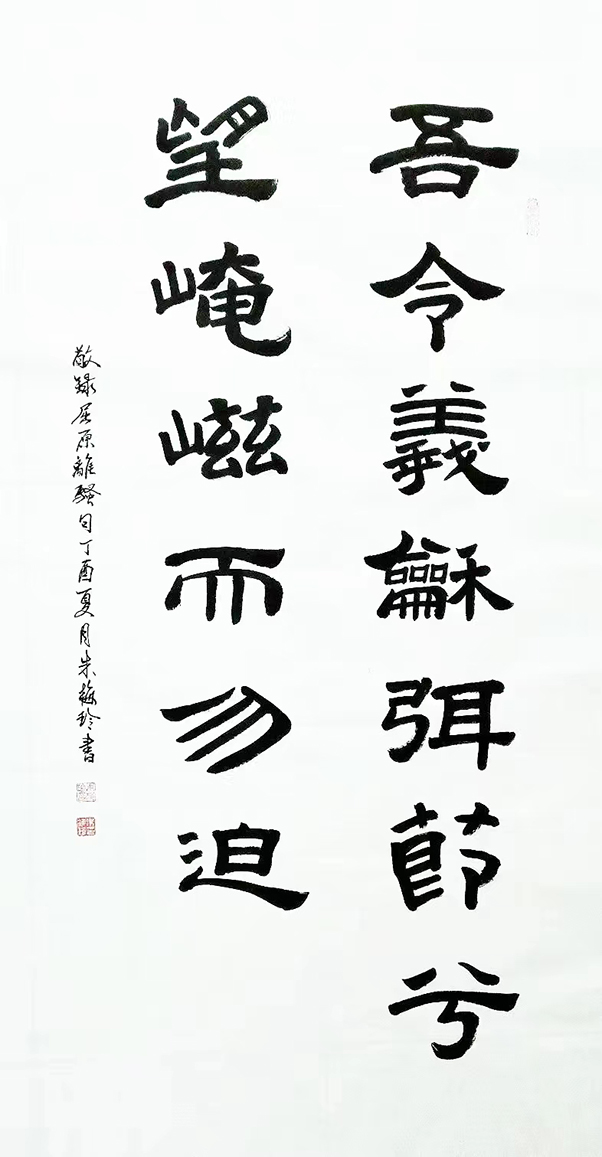 吾令義龢弭節兮
望崦嵫而勿迫
敬録屈原離騷句丁酉夏月朱梅玲書